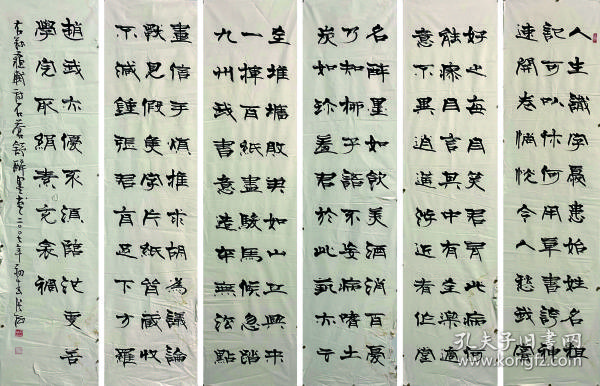 人生識字憂患始姓名粗
記可以休何用草書誇神
速開卷惝怳令人愁我嘗
好之每自笑君有此病何
能瘳自言其中有至樂適
意不異逍遙遊近者作堂
名醉墨如飲美酒消百憂
乃知柳子語不妄病嗜土
炭如珍羞君於此藝亦云
至堆牆敗筆如山丘興來
一揮百紙盡駿馬倏忽踏
九州我書意造本無法點
畫信手煩推求胡為議論
獨見假隻字片紙皆藏收
不減鍾張君自足下方羅
趙我亦優不須臨池更苦
學完取絹素充衾裯
右錄蘇軾詩石蒼舒醉墨堂二〇〇七年初
孔夫子旧书网